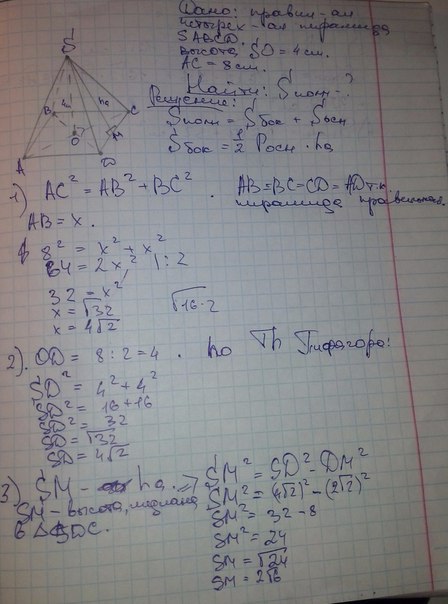 Дано: правил-ая
четырех-ая пирамида
SABCD.
высота SO = 4 см.
AC = 8 см.
Найти: Sполн-?
Решение:
Sполн = Sбок + Sосн
Sбок = 1/2 Pосн · ha
S
B
4см
ha
C
M
O
A
D
1) AC² = AB² + BC². AB=BC=CD=AD т.к.
пирамида правильная.
AB = x.
8² = x² + x²
64 = 2x², | : 2
32 = x²
x = √32
√16·2
x = 4√2
2). OD = 8 : 2 = 4. по Th Пифагора:
SD² = 4² + 4²
SD² = 16 + 16
SD² = 32
SD = √32
SD = 4√2
3) SM - ha =>
SM - высота, медиана
в △SDC.
SM² = SD² - DM²
SM² = (4√2)² - (2√2)²
SM² = 32 - 8
SM² = 24
SM = √24
SM = 2√6